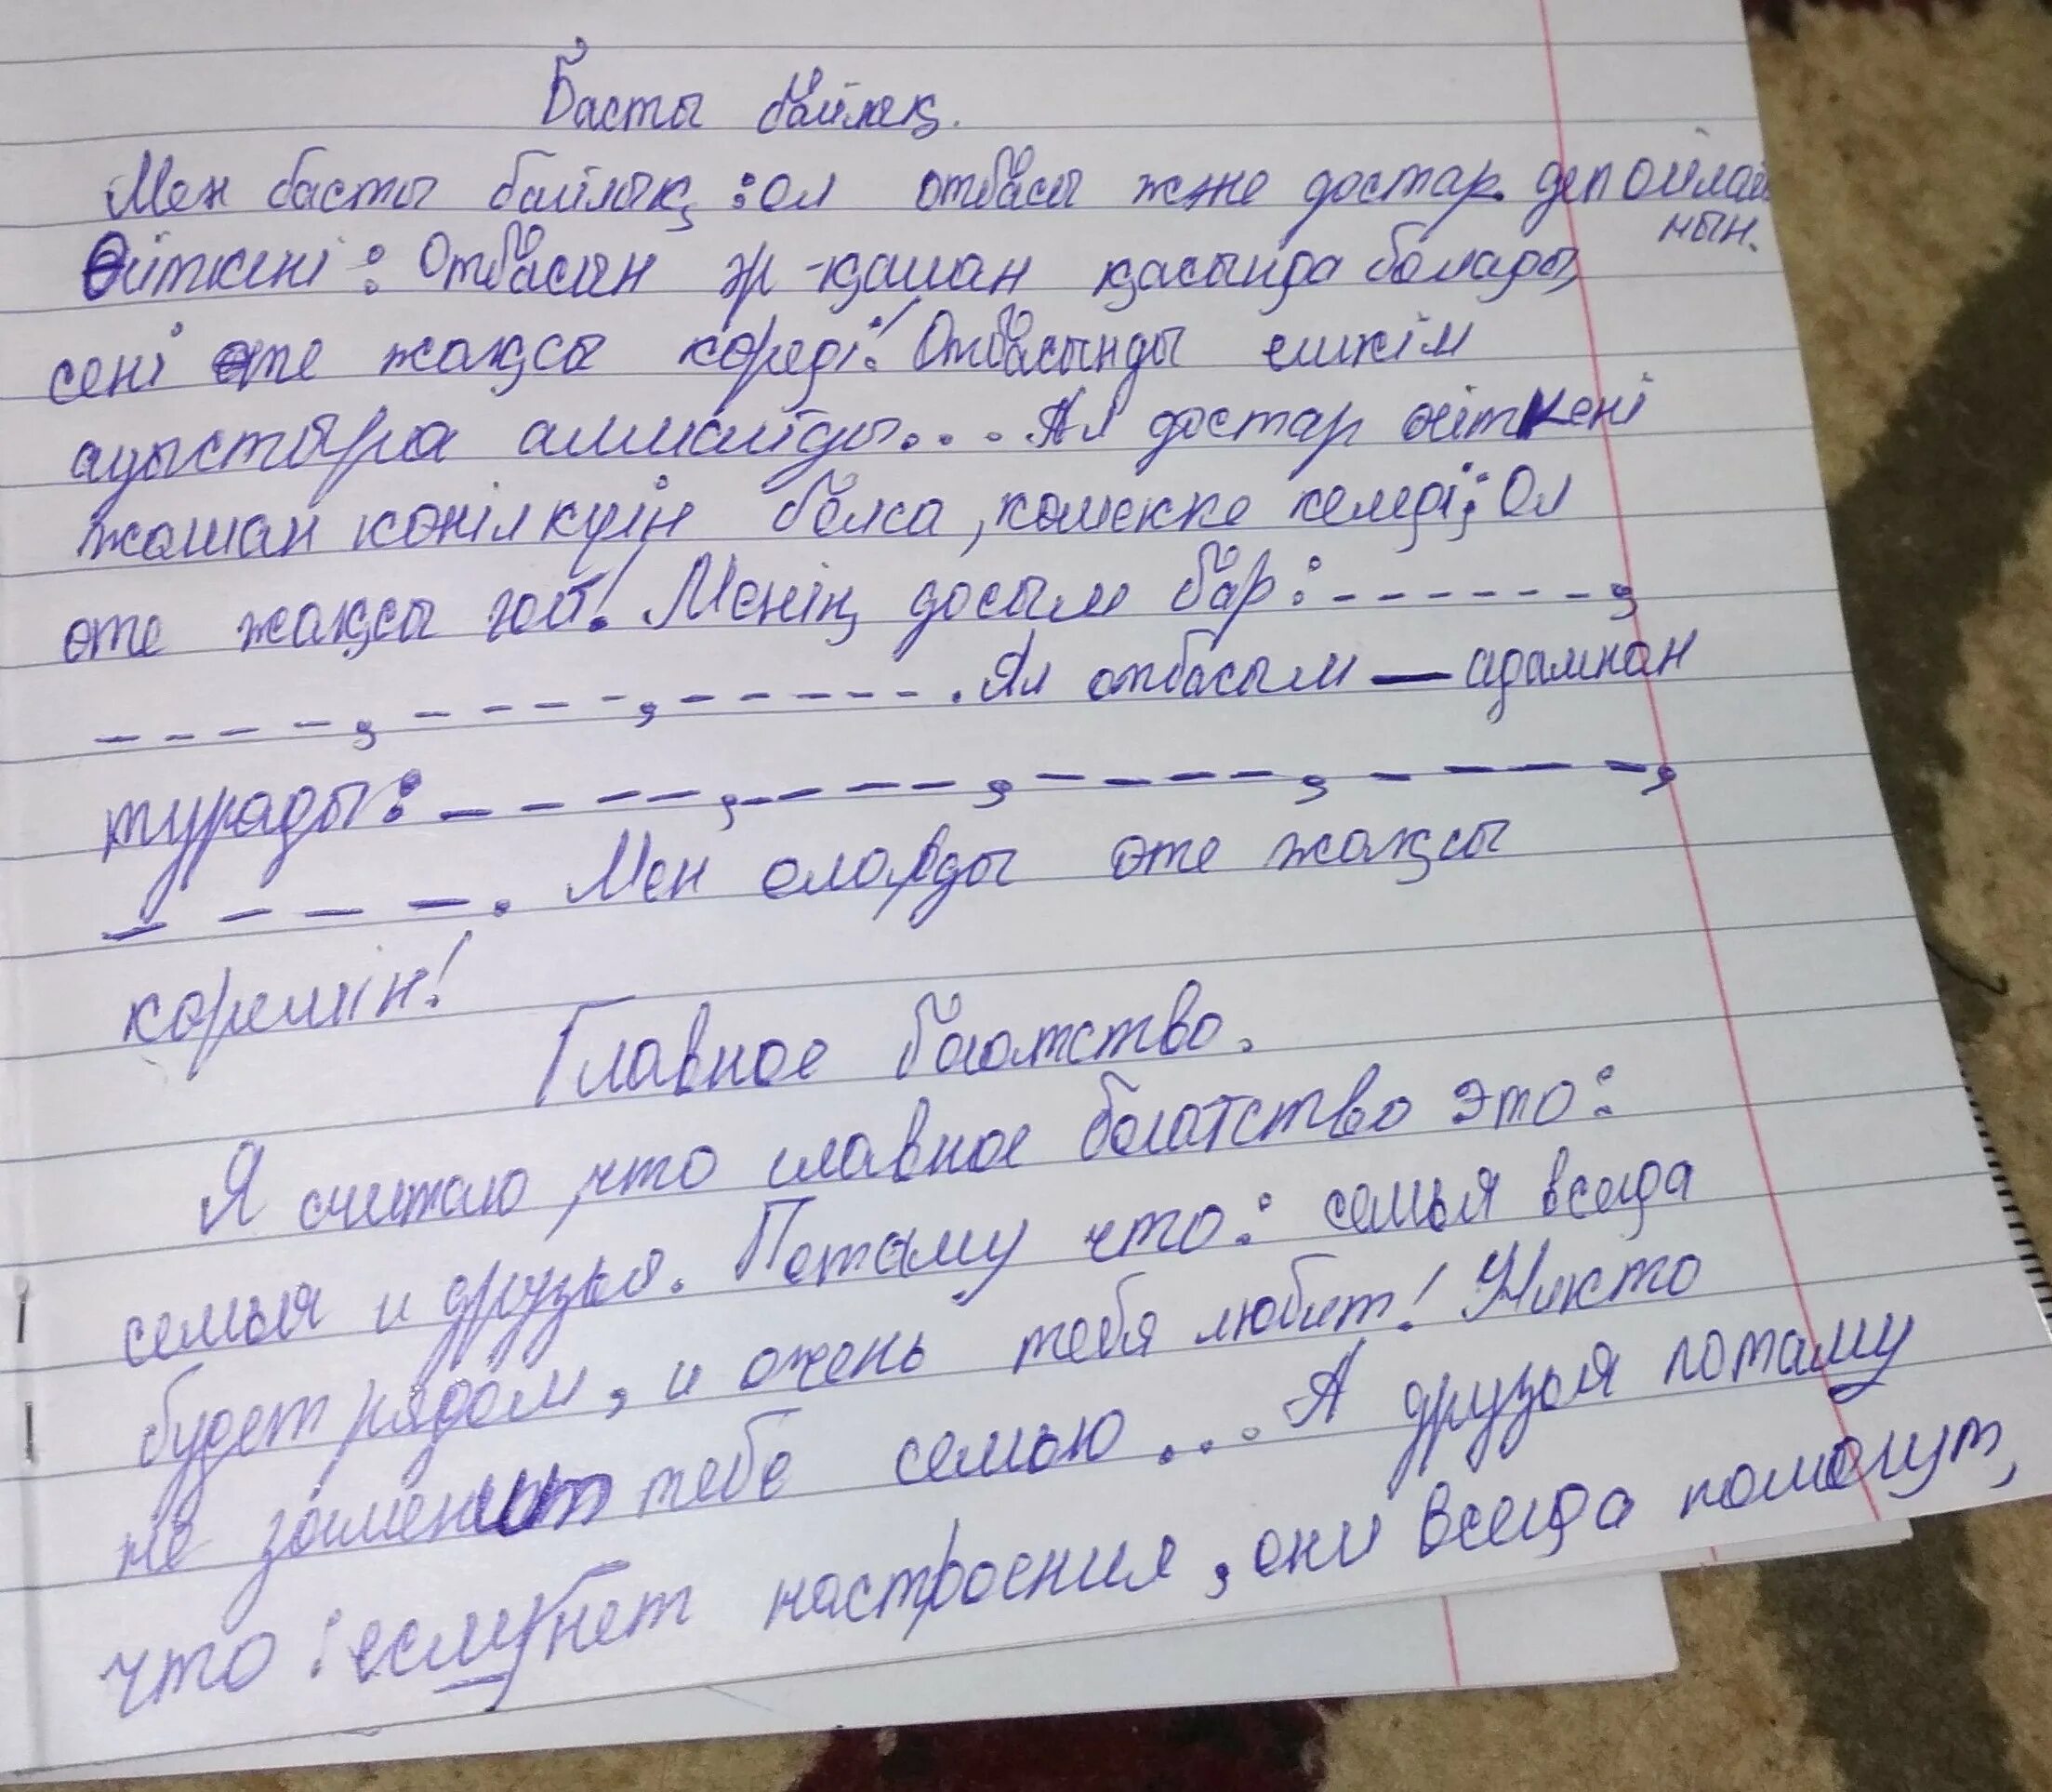 Басты байлық.
Мен басты байлық :ол отбасы және достар. деп ойлай
мын.
Өйткені : Отбасын әр-қашан қасында болады,
сені өте жақсы көреді! Отбасынды ешкім
ауыстыра алмайды... Ал достар өйткені
жаман көңіл күйін болса, көмекке келеді; Ол
өте жақсы гой! Менің досым бар : - - - - - - - ,
- - - - - , - - - - - , - - - - - - . Ал отбасым — адамнан
турады: - - - - - , - - - - - , - - - - - , - - - - - ,
- - - - . Мен оларды өте жақсы
көремін!
Главное богатство.
Я считаю, что главное богатство это:
семья и друзья. Потаму что: семья всегда
будет рядом, и очень тебя любит! Никто
не заменит тебе семью... А друзья потаму
что : если нет настроения, они всегда помогут,